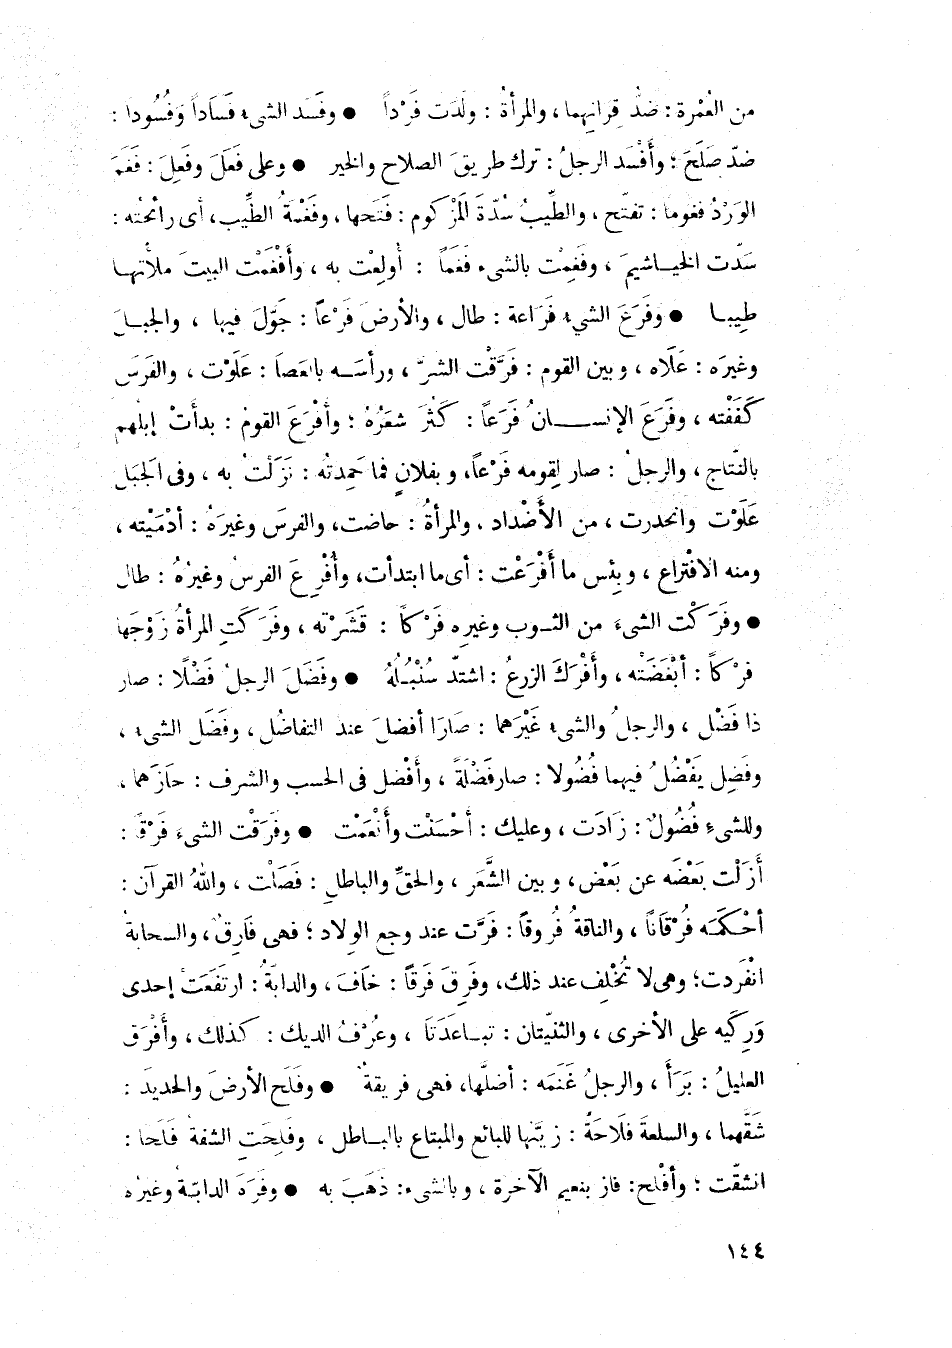 من العُمْرة : ضدُّ قِرانِهما ، والمرأةُ : ولَدَت فَرْداً ● وفَسَد الشىء فَسَاداً وَفُسُودا :
ضدّ صَلَحَ ؛ وأَفْسَد الرجلُ : ترك طريقَ الصلاح والخير ● وعلى فَعَلَ وفَعِلَ : فَغَمَ
الوَرْدُ فغوما : تفتّح ، والطِّيبُ سُدّةَ المَزْكوم : فَتَحها ، وفَغْمةُ الطِّيب ، أى رائحتُه :
سَدّت الخياشيمَ ، وفَغِمْت بالشىء فَغَماً : أُولِعْت به ، وأَفْغَمْت البيتَ ملأتها
طِيبا ● وفَرَعَ الشيء فَرَاعة : طال ، والأرضَ فَرْعاً : جَوّلَ فيها ، والجبلَ
وغيرَه : عَلَاه ، وبين القوم : فَرَّقْت الشرّ ، ورأسَه بالعَصَا : عَلَوْت ، والفَرَسَ
كَفَفْته ، وفَرَعَ الإنسانُ فَرَعاً : كَثُرَ شَعَرُهُ ؛ وأَفْرَعَ القومُ : بدأَتْ إبلُهم
بالنّتاج ، والرجلُ : صار لِقومه فَرْعاً ، وبفلانٍ فما حَمِدتُه : نَزَلْت به ، وفى الجَبل
عَلَوْت وانحدرت ، من الأَضْداد ، والمرأةُ : حاضت ، والفرسَ وغيرَهُ : أدْمَيْته ،
ومنه الافْتِراع ، وبئس ما أَفْرَعْت : أى ما ابتدأت ، وأُفْرِعَ الفرسُ وغيرُهُ : طال
● وفَرَكْت الشىءَ من الثوب وغيرِه فَرْكاً : قَشَرْته ، وفَرَكَتِ المرأةُ زَوْجَها
فِرْكاً : أبْغَضَتْه ، وأَفْرَكَ الزرعُ : اشتدّ سُنْبُلُهُ ● وفَضَلَ الرجلُ فَضْلًا : صار
ذا فَضْل ، والرجلُ والشىء غَيْرَهما : صَارَا أفضلَ عند التفاضُل ، وفَضَل الشىء ،
وفَضِل يَفْضُلُ فيهما فُضُولا : صار فَضْلَةً ، وأَفْضل فى الحسب والشرف : حازَهما ،
وللشىءِ فُضُولٌ : زَادَت ، وعليك : أَحْسَنْت وأَنْعَمْت ● وفَرَقْت الشىءَ فَرْقا :
أَزَلْت بَعْضَه عن بَعْض ، وبين الشَّعَر ، والحقِّ والباطلِ : فَصَلْت ، واللهُ القرآن :
أَحْكَمَه فُرْقَاناً ، والناقةُ فُروقاً : فَرَّت عند وجع الوِلاد ؛ فهى فَارِقٌ ، والسحابةُ
انْفَردت ؛ وهى لا تُخْلِف عند ذلك ، وفَرِقَ فَرَقاً : خَافَ ، والدابّةُ : ارتفَعَتْ إحدى
وَرِكَيه على الأخرى ، والثنيّتان : تباعَدَتَا ، وعُرْفُ الديك : كذلك ، وأَفْرَق
العليلُ : بَرَأَ ، والرجلُ غَنَمَه : أضلَّها ، فهى فريقةٌ ● وفلَح الأرضَ والحديدَ :
شقّهما ، والسلعةَ فَلَاحَةً : زيَّنها للبائع والمبتاع بالباطل ، وفَلِحَتِ الشفةُ فَلَحا :
انشقّت ؛ وأَفْلح : فاز بنعيم الآخرة ، وبالشىء : ذَهَبَ به ● وفَرَه الدابّةُ وغيرُه
١٤٤